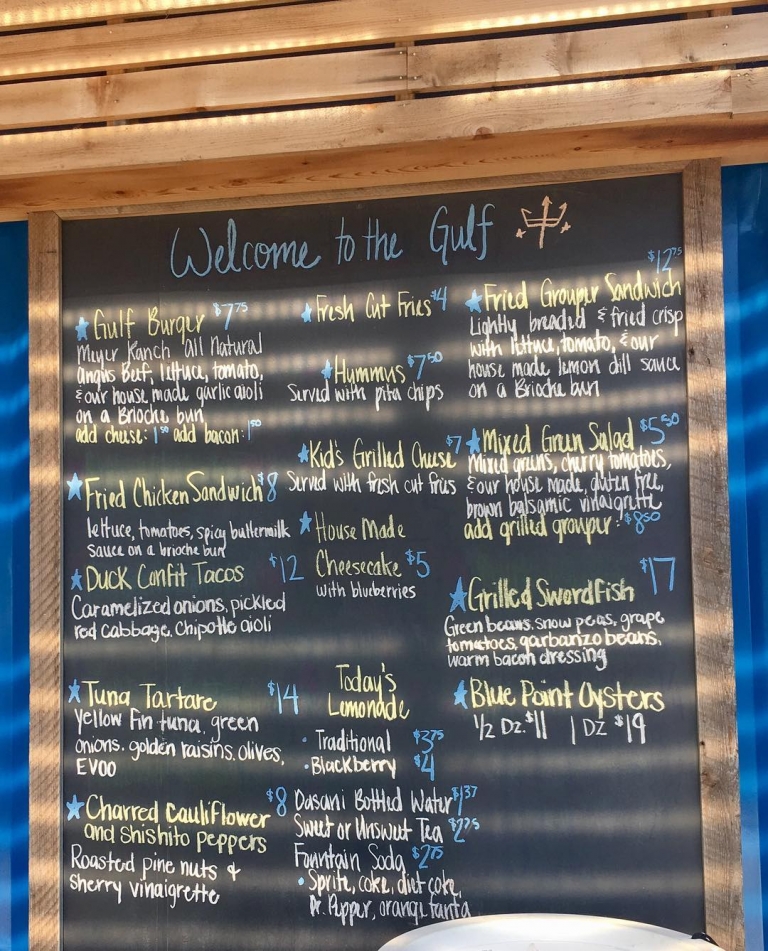 Welcome to the Gulf
Gulf Burger $7.75
Meyer Ranch all Natural
angus Beef, lettuce, tomato,
& our house made garlic aioli
on a Brioche bun
add cheese: 1.50 add bacon: 1.50
Fried Chicken Sandwich $8
lettuce, tomatoes, spicy buttermilk
sauce on a brioche bun
Duck Confit Tacos $12
Caramelized onions, pickled
red cabbage, Chipotle aioli
Tuna Tartare $14
Yellow fin tuna, green
onions, golden raisins, olives,
EVOO
Charred Cauliflower $8
and shishito peppers
Roasted pine nuts &
sherry vinaigrette
Fresh Cut Fries $4
Hummus $7.50
Served with pita chips
Kid's Grilled Cheese $7
Served with fresh cut fries
House Made
Cheesecake $5
with blueberries
Today's
Lemonade
• Traditional $3.75
• Blackberry $4
Dasani Bottled Water $1.37
Sweet or Unsweet Tea $2.75
Fountain Soda $2.75
• Sprite, coke, diet coke,
Dr. Pepper, orange fanta
$12.75
Fried Grouper Sandwich
Lightly breaded & fried crisp
with lettuce, tomato, & our
house made lemon dill sauce
on a Brioche bun
Mixed Green Salad $5.50
Mixed greens, cherry tomatoes,
& our house made, gluten free,
brown balsamic vinaigrette
add grilled grouper: $8.50
Grilled Swordfish $17
Green beans, snow peas, grape
tomatoes, garbanzo beans,
warm bacon dressing
Blue Point Oysters
1/2 Dz. $11 1 Dz $19